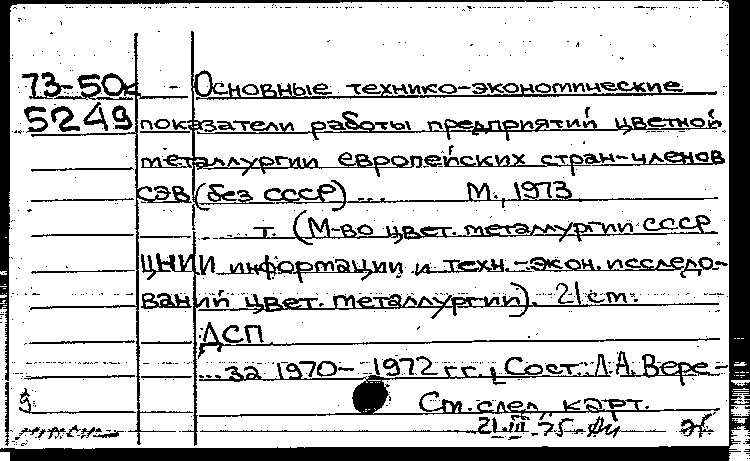 73-50к - Основные технико-экономические
5249 показатели работы предприятий цветной
металлургии европейских стран-членов
СЭВ (без СССР) ... М., 1973
... т. (М-во цвет. металлургии СССР
ЦНИИ информации и техн.-экон. исследо-
ваний цвет. металлургии). 21 см.
ДСП
...за 1970-1972 гг. [Сост.: Л.А. Вере-
См. след. карт.
21.III.75